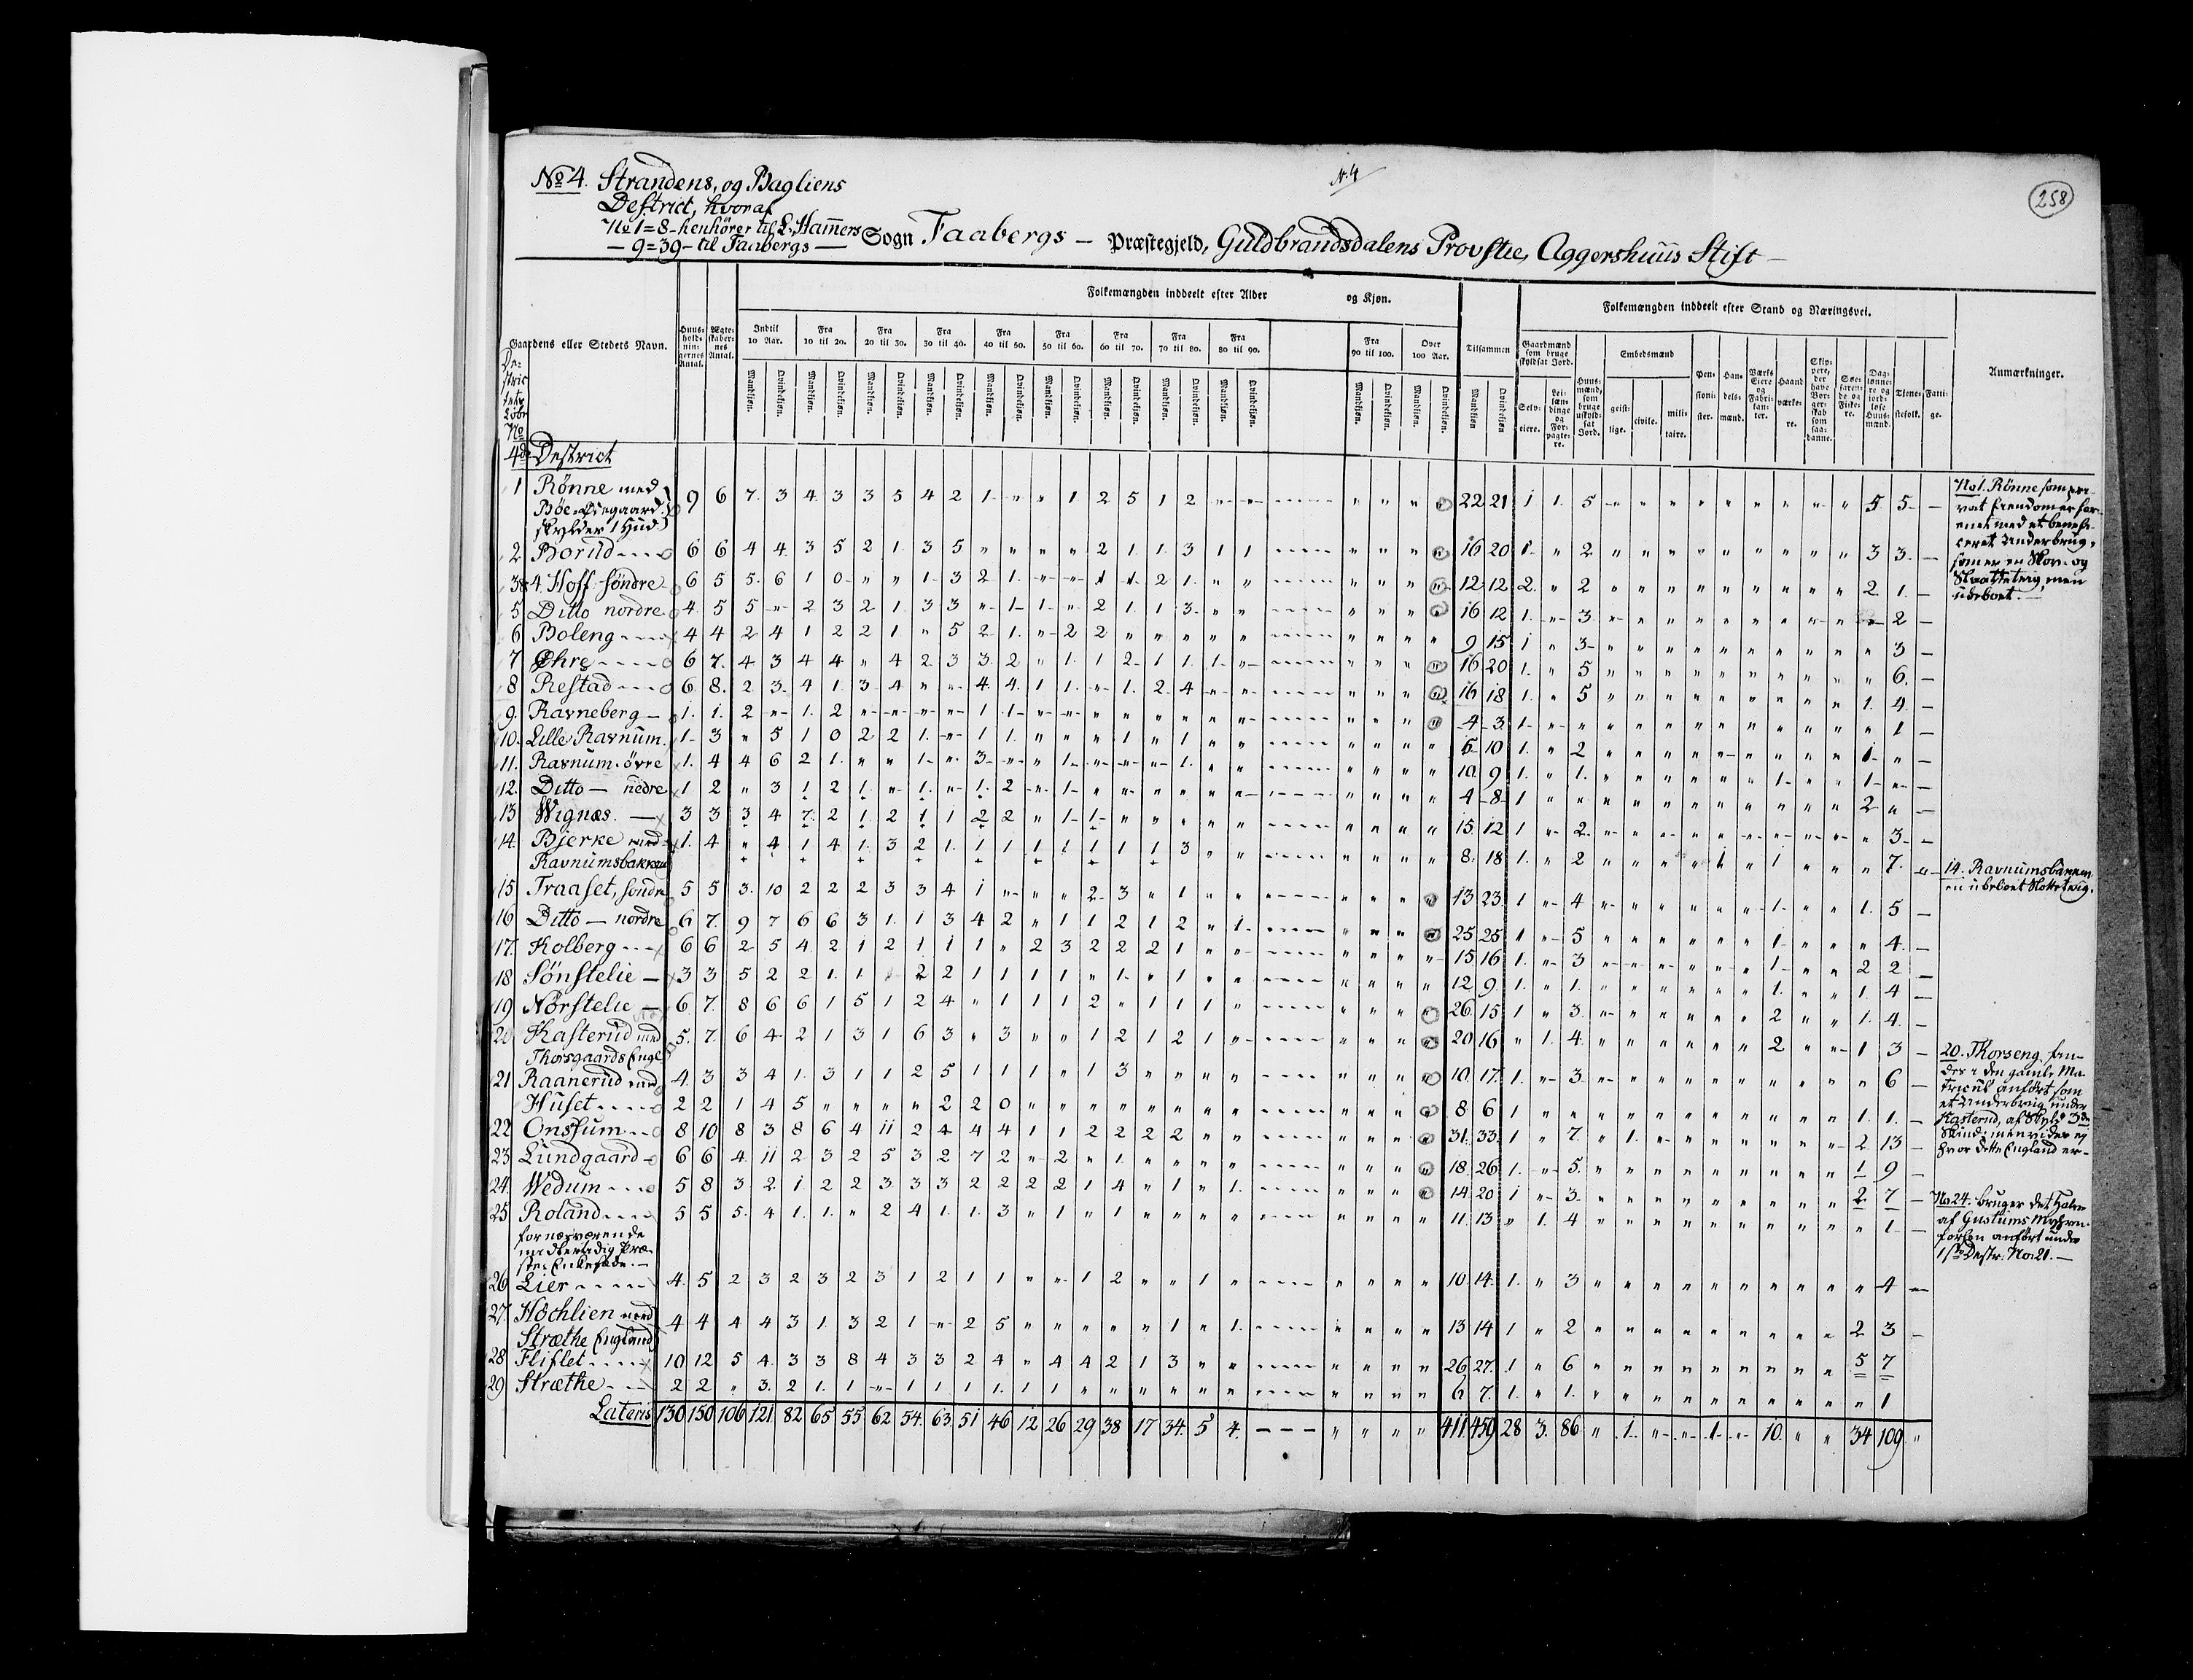 No 4. Strandens, og Bagliens
District, hvoraf
No 1=8- henhörer til L. Hamers
— 9=39- til Faabergs —
N. 4
258
Sogn Faabergs — Præstegjeld, Guldbrandsdalens Provstie, Aggershuus Stift —
Gaardens eller Stedets Navn.
Huus-
hold-
nin-
gernes
Antal.
Ægte-
skaber-
nes
Antal.
Folkemængden inddeelt efter Alder og Kjøn.
Indtil 10 Aar.
Fra 10 til 20.
Fra 20 til 30.
Fra 30 til 40.
Fra 40 til 50.
Fra 50 til 60.
Fra 60 til 70.
Fra 70 til 80.
Fra 80 til 90.
Fra 90 til 100.
Over 100 Aar.
Mandkjøn. Qvindekjøn.
Tilsammen
Mandkjøn Qvindekjøn
Folkemængden inddeelt efter Stand og Næringsvei.
Gaardmænd
som bruge
skyldsat Jord.
Selv-
eiere.
Lei-
læn-
dinge
og
For-
pagte-
re.
Huus-
mænd,
som
bruge
uskyld-
sat
Jord.
Embedsmænd
geist-
lige.
civile.
mili-
taire.
Pen-
sioni-
ster.
Han-
dels-
mænd.
Værks
Eiere
og
Fabri-
kan-
ter.
Haand
værke-
re.
Skip-
pere,
der
have
Bor-
ger-
skab
som
saa-
danne.
Søe-
faren-
de og
Fiske-
re.
Dag-
lønne-
re og
jord-
løse
Huus-
mænd.
Tjene-
stefolk.
Fatti-
ge.
Anmærkninger.
4de District
1 Rönne med
Böe=Ödegaard
skylder 1 Hud 9 6 7. 3 4. 3 3 5 4 2 1 " " 1 2 5 1 2 " " " " " " 22 21 1 1. 5 " " " " " " " " " 5 5 —
2 Borud 6 6 4 4 3 5 2 1 3 5 " " " " 2 1 1 3 1 1 " " " " 16 20 1 " 2 " " " " " " " " " 3 3 —
3&4 Hoff söndre 6 5 5 6 1 0 " " 1 3 2 1 " " 1 1 2 1 " " " " " " 12 12 2 " 2 " " " " " " " " " 2 1 —
5 Ditto nordre 4 5 5 " 2 3 2 1 3 3 " 1 1 " 2 1 1 3 " " " " " " 16 12 1 " 3 " " " " " " " " " " 2 —
6 Boleng 4 4 2 4 1 2 2 1 " 5 2 1 " 2 2 " " " " " " " " " 9 15 1 " 3 " " " " " " " " " " 3 —
7 Öhre 6 7 4 3 4 4 " 4 2 3 3 2 " 1 1 2 1 1 1 " " " " " 16 20 1 " 5 " " " " " " " " " " 6 —
8 Restad 6 8 2 3 4 1 3 4 " " 4 4 1 1 " 1 2 4 " " " " " " 16 18 1 " 5 " " " " " " " " " 1 4 —
9. Ravneberg 1. 1. 2 " 1 2 " " " " 1 1 " " " " " " " " " " " " 4 3 1 " " " " " " " " " " " " 1 —
10. Lille Ravnum 1 3 " 5 1 0 2 2 1 " 1 1 " " " 1 " 1 " " " " " " 6 10 1 " 2 " " " " " " " " " 1 " —
11. Ravnum övre 1. 4 4 6 2 1 " " 1 " 3 " " 1 " " " 1 " " " " " " 10 9 1 " 1 " " " " " " 1 " " 1 " —
12. Ditto — nedre 1 2 " 3 1 2 1 " 1 " 1 2 " 1 " " " " " " " " " " 4 8 1 " " " " " " " " " " " 2 " —
13 Wignæs. 3 3 3 4 7 2 1 2 1 1 2 2 " 1 1 " " " " " " " " " 15 12 1 " 2 " " " " " " " " " " 3 —
14. Bjerke med
Ravnumsbakken 1. 4 " 4 1 4 1 3 2 1 1 1 1 1 1 1 1 3 " " " " " " 8 18 1 " 2 " " " " 1 " 1 " " " 7 —
15 Traaset, söndre 5 5 3 10 2 2 2 3 3 4 1 " " " 2 3 " 1 " " " " " " 13 23 1 " 4 " " " " " " 1 " " 1 5 —
16 Ditto — nordre 6 7 9 7 6 6 3 1 1 3 4 2 " 1 1 2 1 2 " 1 " " " " 25 25 1 " 5 " " " " " " 1 " " " 4 —
17. Kolberg 6 6 2 5 4 2 1 2 1 1 1 " 2 3 2 2 2 1 " " " " " " 15 16 1 " 3 " " " " " " 1 " " 2 2 —
18 Sönstelie 3 3 5 2 2 1 1 2 2 1 1 1 1 " 1 " 1 " " " " " " 12 9 1 " 1 " " " " " " 1 " " 1 4 —
19 Nörstelie 6 7 8 6 6 1 5 1 2 4 " 1 1 1 2 " 1 1 1 " " " " " 26 15 1 " 3 " " " " " " 2 " " 1 4 —
20 Kasterud med
Thorsgaards Enge 5. 7. 6 4 2 1 3 1 6 3 " 3 " " 1 2 1 2 1 " " " " " 20 16 " 1 4 " " " " " " 2 " " 1 3 —
21 Raanerud med 4 3 3 4 1 3 1 1 2 5 1 1 1 " 1 3 " " " " " " " " 10 17 1 " 3 " " " " " " " " " " 6 —
Huset 2 2 1 4 5 " " " " 2 2 0 " " " " " " " " " " " " 8 6 1 " " " " " " " " " " " 1 1 —
22 Onssum 8 10 8 3 8 6 4 11 2 4 4 4 1 1 2 2 2 2 " " " " " " 31 33 1 " 7 " 1 " " " " " " " 2 13 —
23 Lundgaard 6 6 4 11 2 3 2 5 3 2 7 2 " 2 " 1 " " " " " " " " 18 26 1 " 5 " " " " " " " " " 1 9 —
24. Wedum 5 8 3 2 1 2 2 3 3 3 2 2 2 2 1 4 " 1 " 1 " " " " 14 20 1 " 3 " " " " " " " " " 2 7 —
25 Roland 5 5 5 4 1 1 " 2 4 1 1 3 " 1 " 1 " " " " " " " " 11 13 " 1 4 " " " " " " " " " " 1 —
for nærværende
26 Lier 4 5 2 3 2 3 2 3 1 2 1 1 " " 1 2 " " 1 " " " " " 10 14 1 " 3 " " " " " " " " " " 4 —
27. Höchlien med
Stræthe England 4 4 4 4 3 1 3 2 1 " 2 5 " " " " " 1 " 1 " " " " 13 14 1 " 2 " " " " " " " " " 2 3 —
28 Fliflet 10 12 5 4 3 3 8 4 3 3 2 4 " 4 4 2 1 3 " " " " " " 26 27 1 " 6 " " " " " " " " " 5 7
29 Stræthe 2 2 " 3 2 1 1 " 1 1 1 1 1 1 " " " " " " " " " " 6 7 1 " 1 " " " " " " " " " " 1
Lateris 130 150 106 121 82 65 55 62 54 63 51 46 12 26 29 38 17 34 5 4 — — — " " " " 411 459 28 3 86 " 1 " " 1 " 10 " " 34 109 "
No 1. Rönne som pri-
vat Eiendom er for-
enet med et benefi-
ceret Underbrug,
som er en Skov- og
Slaatteteig, men
ubeboet.
14. Ravnumsbakken
en ubeboet Slotteteig.
20. Thorseng fin-
des i den gamle Ma-
tricul anfört som
et Underbrug under
Kasterud, af Skyld 3de
Skind; men vides ej
hvor dette England er-
No 24. bruger det Halve
af Gustums
anfört under
1ste Destr. No 21. —